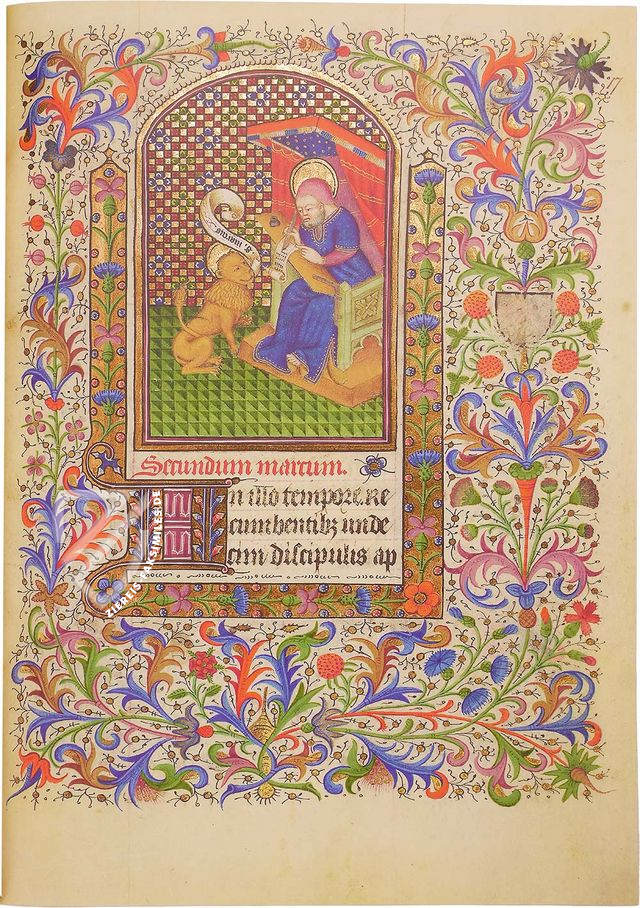 S. marcus
Secundum marcum.
In illo tempore. Re
cumbentibz unde
cim discipulis ap
ZIEREIS FAKSIMILES.DE